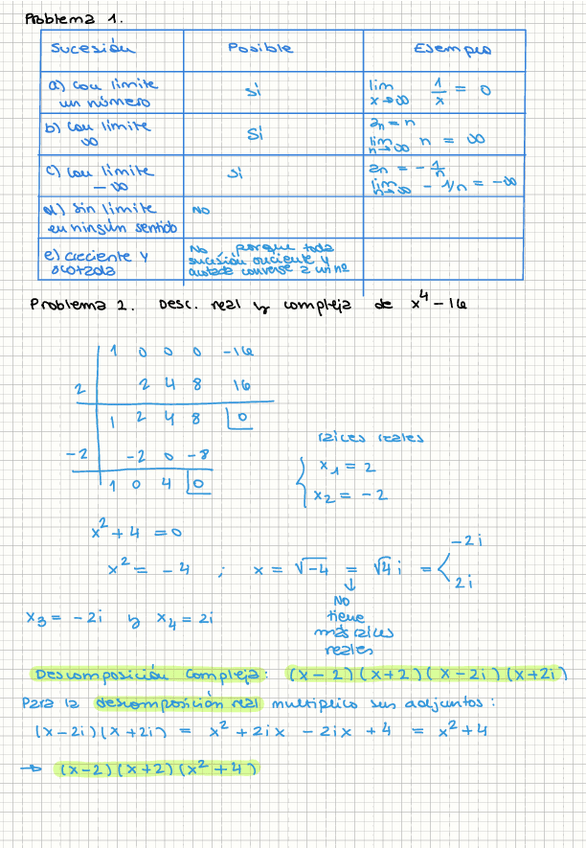 Problema 1.
Sucesión Posible Ejemplo
a) con límite un número sí lim x→∞ 1/x = 0
b) con límite ∞ Sí an = n lim n→∞ n = ∞
c) con límite -∞ sí an = - 1/n lim n→∞ - 1/n = -∞
d) sin límite en ningún sentido NO
e) creciente y acotada No porque toda sucesión creciente y acotada converge a un nº
Problema 2. Desc. real y compleja de x⁴ - 16
1 0 0 0 -16
2 2 4 8 16
1 2 4 8 0
-2 -2 0 -8
1 0 4 0
raíces reales
x₁ = 2
x₂ = -2
x² + 4 = 0
x² = -4 ; x = √-4 = √4 i = -2i
2i
No
tiene
más raíces
reales
x₃ = -2i y x₄ = 2i
Descomposición Compleja: (x-2)(x+2)(x-2i)(x+2i)
Para la descomposición real multiplico sus adjuntos:
(x-2i)(x+2i) = x² + 2ix - 2ix + 4 = x² + 4
→ (x-2)(x+2)(x² + 4)